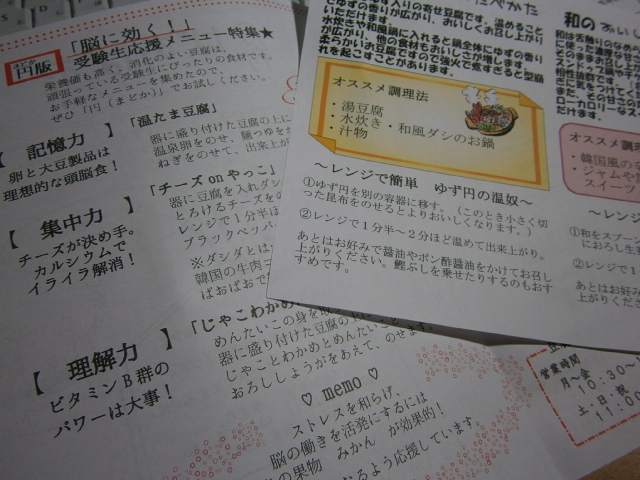 円版
まどか
「脳に効く！」
受験生応援メニュー特集★
栄養価も高く、消化のよい豆腐は、
頑張っている受験生にぴったりの食材です。
お手軽なメニューを集めたので、
ぜひ「円（まどか）」でお試しください。
【 記憶力 】
卵と大豆製品は
理想的な頭脳食！
「温たま豆腐」
器に盛り付けた豆腐の上に
温泉卵をのせ、麺つゆを
ねぎをのせて、出来上が
【 集中力 】
チーズが決め手。
カルシウムで
イライラ解消！
「チーズ on やっこ」
器に豆腐を入れダシ
とろけるチーズを
レンジで１分半ほ
ブラックペッパ
※ダシダとは
韓国の牛肉
ばおばおで
【 理解力 】
ビタミンＢ群の
パワーは大事！
「じゃこわかめ
めんたいこの身を取
器に盛り付けた豆腐の上
じゃことわかめとめんたいこ
おろししょうがをあえて、のせます。
♡ memo ♡
ストレスを和らげ、
脳の働きを活発にするには
の果物 みかん が効果的！
なるよう応援しています。
入りの寄せ豆腐です。温めること
でゆずの香りが広がり、おいしくお召し上がり
いただけます。
水炊きや和風鍋に入れると鍋全体にゆずの香り
が広がり、他の食材もおいしさが増します。
れを起こすことがあります。
オススメ調理法
・湯豆腐
・水炊き・和風ダシのお鍋
・汁物
～レンジで簡単 ゆず円の温奴～
①ゆず円を別の容器に移す。（このとき小さく切
った昆布をのせるとよりおいしくなります。）
②レンジで１分半～２分ほど温めて出来上がり。
あとはお好みで醤油やポン酢醤油をかけてお召し
上がりください。鰹ぶしを乗せたりするのもおす
すめです。
和のおいし
オススメ調理
・韓国風の
・ジャムや
スイーツ
～レン
①和をスプー
におろし生
②レンジで１
あとはお好み
上がりくださ
営業時間
月～金
10:30～
土・日・祝
11:00